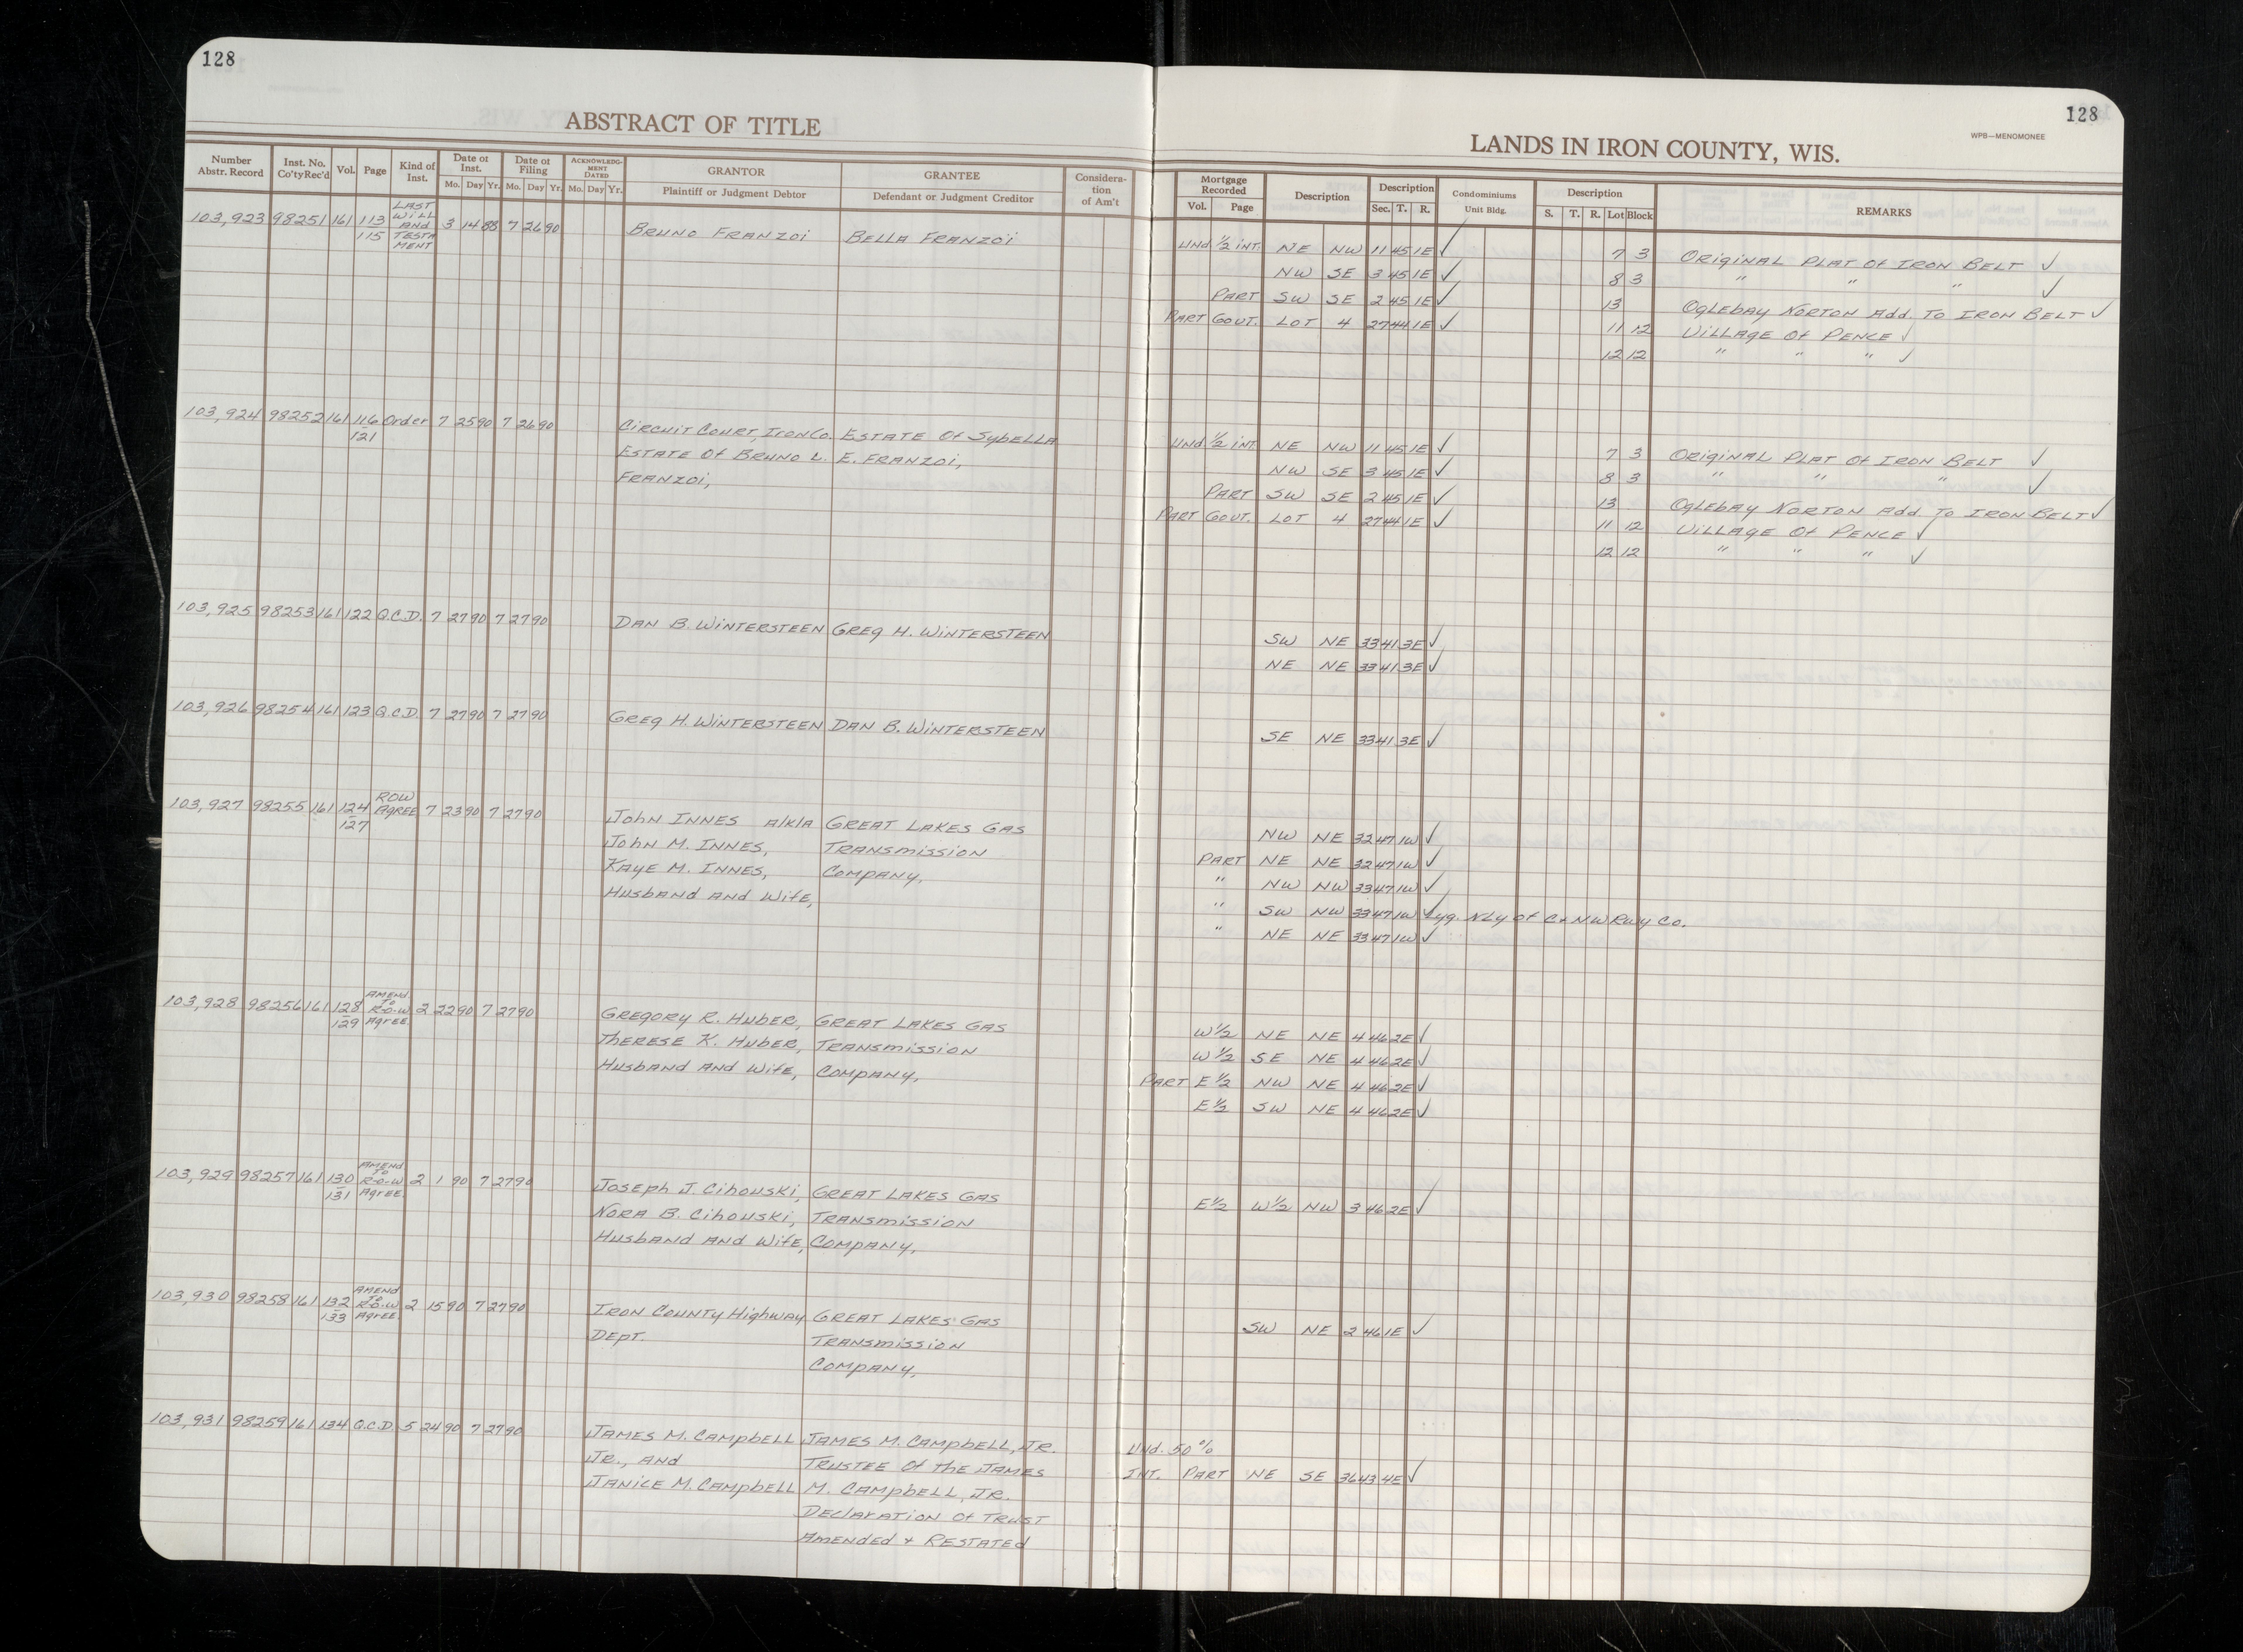 128
ABSTRACT OF TITLE
Number Abstr. Record Inst. No. Co'ty Rec'd Vol. Page Kind of Inst. Date of Inst. Mo. Day Yr. Date of Filing Mo. Day Yr. ACKNOWLEDGMENT DATED Mo. Day Yr. GRANTOR Plaintiff or Judgment Debtor GRANTEE Defendant or Judgment Creditor Consideration of Am't
103,923 98251 161 113 115 LAST WILL AND TESTAMENT 3 14 88 7 26 90 BRUNO FRANZOI BELLA FRANZOI
103,924 98252 161 116 121 Order 7 25 90 7 26 90 CIRCUIT COURT, IRON CO. ESTATE Of SybELLA
ESTATE Of BRUNO L. E. FRANZOI,
FRANZOI,
103,925 98253 161 122 Q.C.D. 7 27 90 7 27 90 DAN B. WINTERSTEEN GREG H. WINTERSTEEN
103,926 98254 161 123 Q.C.D. 7 27 90 7 27 90 GREG H. WINTERSTEEN DAN B. WINTERSTEEN
103,927 98255 161 124 127 ROW AGREE 7 23 90 7 27 90 JOHN INNES A/K/A GREAT LAKES GAS
JOHN M. INNES, TRANSMISSION
KAYE M. INNES, COMPANY,
HUSBAND AND WIFE,
103,928 98256 161 128 129 AMEND. TO R-O-W Agree. 2 22 90 7 27 90 GREGORY R. HUBER, GREAT LAKES GAS
THERESE K. HUBER, TRANSMISSION
HUSBAND AND WIFE, COMPANY,
103,929 98257 161 130 131 AMEND TO R-O-W Agree. 2 1 90 7 27 90 JOSEPH J. CIHOUSKI, GREAT LAKES GAS
NORA B. CIHOUSKI, TRANSMISSION
HUSBAND AND WIFE, COMPANY,
103,930 98258 161 132 133 AMEND TO R-O-W Agree. 2 15 90 7 27 90 IRON COUNTY HIGHWAY GREAT LAKES GAS
DEPT. TRANSMISSION
COMPANY,
103,931 98259 161 134 Q.C.D. 5 24 90 7 27 90 JAMES M. CAMPBELL JAMES M. CAMPBELL, JR.
JR., AND TRUSTEE Of THE JAMES
JANICE M. CAMPBELL M. CAMPBELL, JR.
DECLARATION Of TRUST
AMENDED + RESTATED
128
WPB—MENOMONEE
LANDS IN IRON COUNTY, WIS.
Mortgage Recorded Vol. Page Description Description Sec. T. R. Condominiums Unit Bldg. Description S. T. R. Lot Block REMARKS
UND 1/2 INT. NE NW 11 45 1E ✓ 7 3 ORIGINAL PLAT Of IRON BELT ✓
NW SE 3 45 1E ✓ 8 3 " " " ✓
PART SW SE 2 45 1E ✓ 13 OGLEBAY NORTON Add. TO IRON BELT ✓
PART GOUT. LOT 4 27 44 1E ✓ 11 12 VILLAGE Of PENCE ✓
12 12 " " " ✓
UND 1/2 INT NE NW 11 45 1E ✓ 7 3 ORIGINAL PLAT Of IRON BELT ✓
NW SE 3 45 1E ✓ 8 3 " " " ✓
PART SW SE 2 45 1E ✓ 13 OGLEBAY NORTON Add. TO IRON BELT ✓
PART GOUT. LOT 4 27 44 1E ✓ 11 12 VILLAGE Of PENCE ✓
12 12 " " " ✓
SW NE 33 41 3E ✓
NE NE 33 41 3E ✓
SE NE 33 41 3E ✓
NW NE 32 47 1W ✓
PART NE NE 32 47 1W ✓
" NW NW 33 47 1W ✓
" SW NW 33 47 1W ✓ Lyg. NLy of C&NW Rwy Co.
" NE NE 33 47 1W ✓
W1/2 NE NE 4 46 2E ✓
W1/2 SE NE 4 46 2E ✓
PART E1/2 NW NE 4 46 2E ✓
E1/2 SW NE 4 46 2E ✓
E1/2 W1/2 NW 3 46 2E ✓
SW NE 2 46 1E ✓
Und. 50%
INT. PART NE SE 36 43 4E ✓